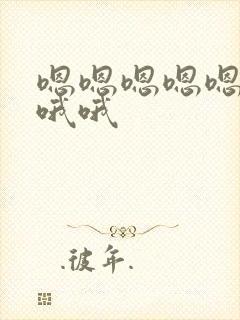 嗯嗯嗯嗯嗯
哦哦
.彼年.